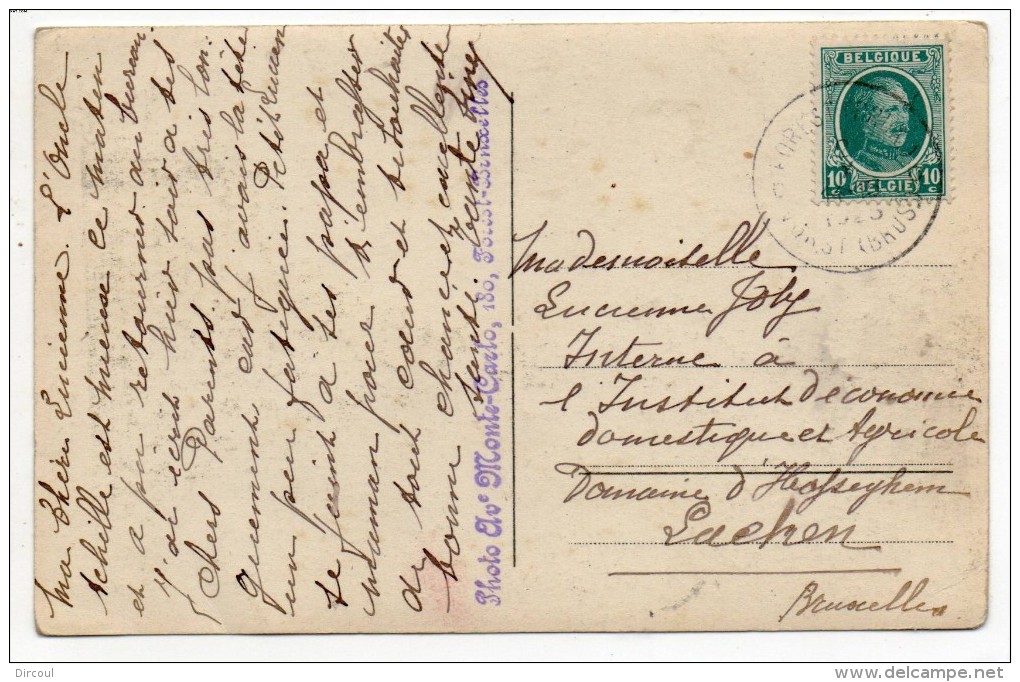 Ma Chère Lucienne. L'Oncle
Achille est mieux ce matin
et a pu retourner au bureau.
J'ai écrit hier soir à tes
Chers Parents, pas très lon-
guement car j'avais la tête
un peu fatiguée. Petit Lucien
se joint à tes papa et
maman pour t'embrasser
de tout cœur et te souhaiter
bonne chance et excellente
santé. Tante Finy
Photo Av<sup>e</sup> Monte-Carlo, 180, Forest-Bruxelles
BELGIQUE
10 c 10 c
BELGIË
FOREST
VORST (BRUS
Mademoiselle
Lucienne Joly
Interne à
l'Institut d'économie
domestique et Agricole
Domaine d'Hosseghem
Laeken
Bruxelles
Dircoul
www.delcampe.net